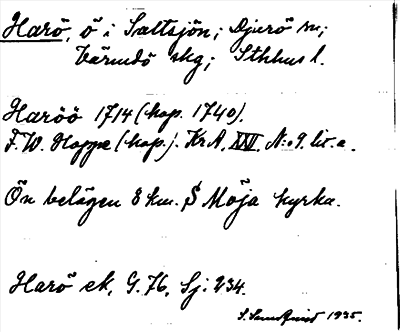 Harö, ö i Saltsjön; Djurö sn;
Värmdö skg; Sthlms l.
Haröö 1714 (kop. 1740).
F.W. Hoppe (kop.). KrA, XXI. N:o 9. lit. a.
Ön belägen 8 km. S Möja kyrka.
Harö ek, G. 76, Sj: 234.
S. Sundqvist 1935.